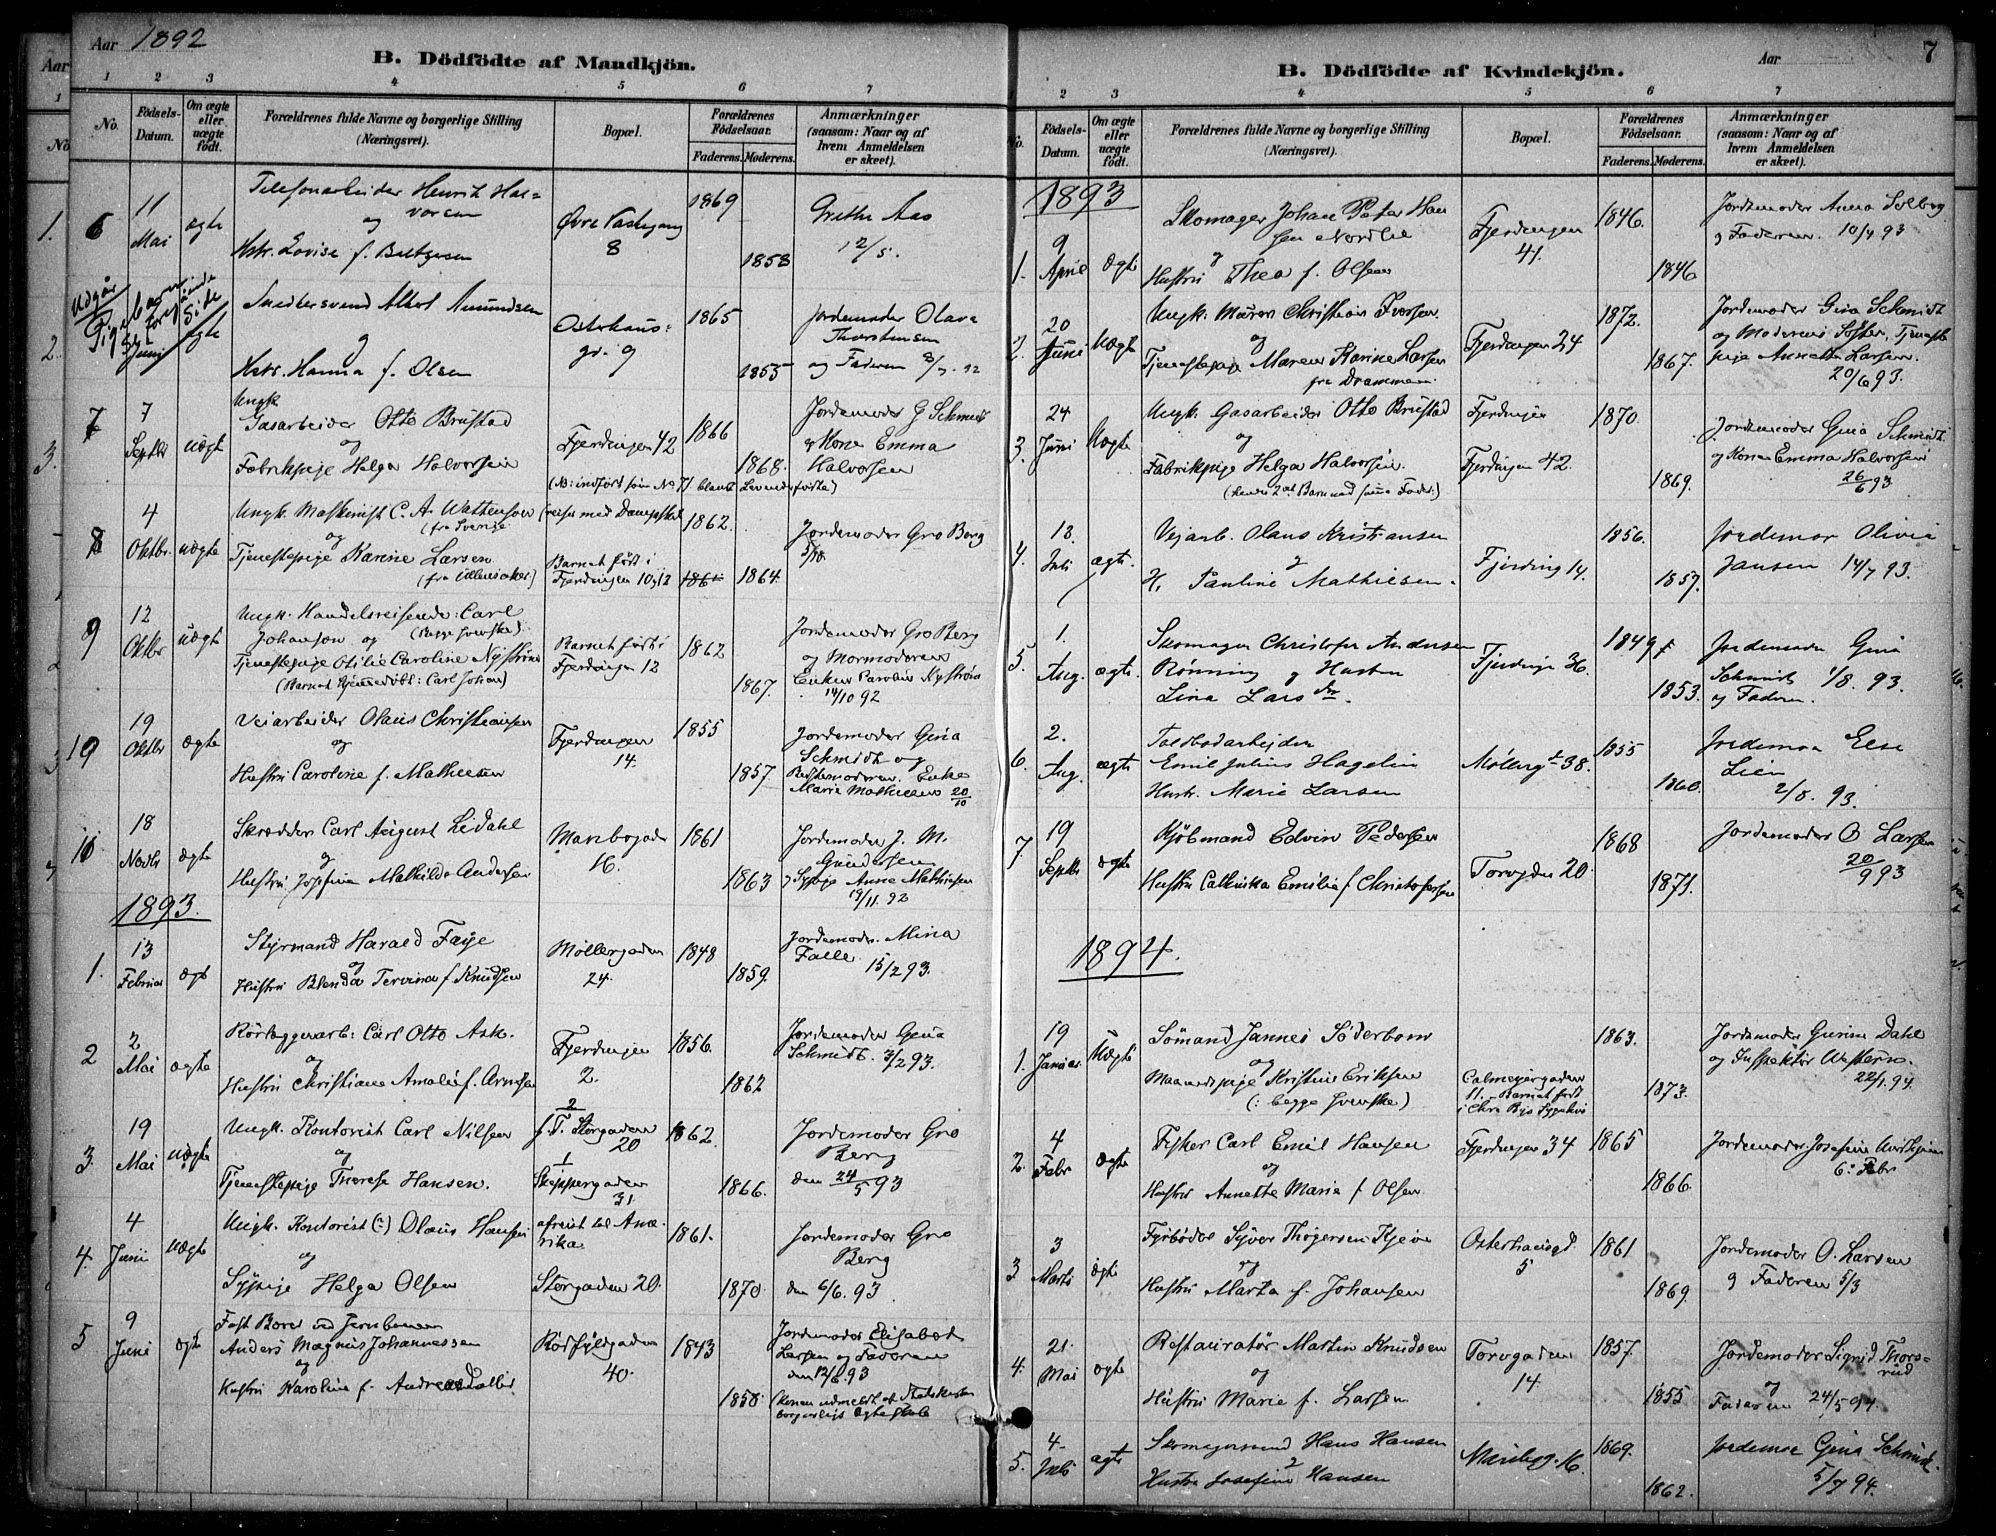 Aar 1892
B. Dödfödte af Mandkjön.
1 2 3 4 5 6 7
No.
Födsels-
Datum.
Om ægte
eller
uægte
födt.
Forældrenes fulde Navne og borgerlige Stilling
(Næringsvei).
Bopæl.
Forældrenes
Födselsaar.
Faderens. Moderens.
Anmærkninger
(saasom: Naar og af
hvem Anmeldelsen
er skeet).
6 11 Mai ægte
Telefonarbeider Henrik Hal=
vorsen
og
Hstr. Lovise f. Baltzersen
8
1869
1858
Grethe Aas
12/5.
Udgår
Pigebarn
Side
Juni ægte
Smedsvend Albert Amundsen
og
Hstr. Hanna f. Olsen
Osterhaus:
gd. 9
1865
1855
Jordemoder Olava
Thorstensen
og Faderen 8/7. 92
7 7 Septbr uægte
Ungk.
Gasarbeider Otto Brustad
og
Fabrikpige Helga Halvorsen
Fjerdingen 42
1866
1868.
Jordemoder G Schmidt
& Kone Emma
Halvorsen
(NB: indført som No 71 blandt Levende fødte)
8 4 Oktbr. uægte
Ungk. Maskinist C. A. Wattenson
(fra Sverige
og
Tjenestepige Karine Larsen
(fra Ullensaker)
(reiser med Dampskib
Barnet født i
Fjerdingen 10 og 12
1862.
1864.
Jordemoder Gro Berg
5/10.
9 12 Oktbr uægte
Ungk. Handelsreisende: Carl
Johanson og (Begge Svenske)
Tjenestepige Otilie Caroline Nyström
(Barnet hjemmedöbt: Carl Johan)
Barnet født i
Fjerdingen 12
1862
1867.
Jordemoder Gro Berg
og Mormoderen
Enken Caroline Nyström
14/10 92
10 19 Oktbr ægte
Veiarbeider Olaus Christiansen
og
Hustru Caroline f. Mathiesen
Fjerdingen
14.
1855
1857
Jordemoder Gina
Schmidt og
Bedstemoderen Enke
Marie Mathiesen 20/10
11 18 Novbr ægte
Skrædder Carl August Lidahl
og
Hustru Josefine Mathilde Andersen
Maribogaden
16.
1861
1863
Jordemoder J. M.
Gundersen
og Sypige Anne Mathiesen
19/11. 92
1893.
1. 13 Februar ægte
Styrmand Harald Faye
og
Hustru Blenda Tervina f. Knudsen
Møllergaden
24.
1848
1859.
Jordemoder. Mina
Falle 15/2 93.
2 2 Mai ægte
Rörlæggerarb: Carl Otto Ask.
og
Hustru Christiane Amalie f. Arnesen
Fjerdingen
2.
1856.
1862
Jordemoder Gina
Schmidt. 3/2 93.
3. 19 Mai uægte
Ungk. Kontorist Carl Nilsen
og
Tjenestepige Therese Hansen.
f. T. Storgaden
20
Skippergaden
31
1862.
1866.
Jordemoder Gro
Berg
den 24/5 93
4. 4 Juni uægte
Ungk. Kontorist (?) Olaus Hansen
og
Sypige Helga Olsen
afreist til Ame-
rika
Storgaden 20.
1861.
1870
Jordemoder Gro
Berg
den 6/6. 93
5 9 Juni ægte
Fast Borer ved Jernbanen
Anders Magnus Johannessen
og
Hustru Karoline f.
Rödfyldgaden
40.
1843
1858.
Jordemoder Elisabet
Larsen og Faderen
den 12/6. 93
(Konen udmeldt af Statskirken
borgerligt Ægteskab
B. Dödfödte af Kvindekjön.
Aar
7
1 2 3 4 5 6 7
No.
Födsels-
Datum.
Om ægte
eller
uægte
födt.
Forældrenes fulde Navne og borgerlige Stilling
(Næringsvei).
Bopæl.
Forældrenes
Födselsaar.
Faderens. Moderens.
Anmærkninger
(saasom: Naar og af
hvem Anmeldelsen
er skeet).
1893
1. 9 April Ægte
Skomager Johan Peter Han
sen Nordlie
og
Hustru Thea f. Olsen
Fjerdingen
41.
1846.
1846
Jordemoder Anna Solberg
og Faderen 10/4 93
2. 20 Juni Uægte
Ungk. Murer Christian Iversen
og
Tjenestepige Maren Karine Larsen
fra Drammen
Fjerdingen 24
1872.
1867.
Jordemoder Gina Schmidt
og Moderens Søster, Tjeneste
pige Annette Larsen.
20/6 93.
3. 24 Juni Uægte
Ungk. Gasarbeider Otto Brustad
og
Fabrikpige Helga Halvorsen.
(hendes 2det Barn med samme Fader)
Fjerdingen
Fjerdingen 42.
1870.
1869.
Jordemoder Gina Schmidt
og Konen Emma Halvorsen
26/6 93
4. 13. Juli ægte.
Vejarb. Olaus Kristiansen
og
H. Pauline Mathiesen.
Fjerding 14.
1856.
1857.
Jordemor Olivia
Jansen 14/7 93.
5. 1. Aug. ægte.
Skomager Christofer Andersen
Rønning og Hustru
Lina Larsdtr.
Fjerdinge 36.
1849
1853.
Jordemoder Gina
Schmidt 1/8. 93.
og Faderen.
6. 2. Aug. ægte
Toldbodarbejder
Emil Julius Hagelin
Hustr. Marie Larsen
Møllergt 38.
1855
1860.
Jordemor Else
Lien
2/8. 93.
7. 19 Septbr ægte
Kjöbmand Edvin Pedersen
Hustru Cathinka Emilie f Christofersen
Torvgden 20.
1868
1871.
Jordemoder O Larsen
20/9 93
1894.
1. 19 Januar Uægte
Sömand Jannes Söderbom
og
Maanedspige Kristine Eriksen
(: begge Svenske)
Calmeyergaden
11. - Barnet født
i Chra Bys Sygehus
1863.
1873.
Jordemoder Gurine Dahl
og Inspektør Western.
22/1. 94.
2. 4 Febr ægte
Fisker Carl Emil Hansen
og
Hustru Annette Marie f. Olsen
Fjerdingen 34
1865
1866.
Jordemoder. Josefine
6. Febr
3 3 Marts ægte
Fyrböder Syver Thögersen Kjevi
og
Hustru Marta f. Johansen
Osterhausgd.
5
1861
1869.
Jordemoder O. Larsen
og Faderen 5/3
4. 21. Mai ægte
Restauratør Martin Knudsen
og
Hustru Marie f. Larsen
Torvgaden
14.
1857.
1855
Jordemoder Sigrid Thors=
rud
og
Faderen 24/5 94.
5. 4- Juli ægte
Skomagersvend Hans Hansen
og
Hustru Josefine Hansen
Maribog. 16.
1869.
1862.
Jordemor Gina Schmidt.
5/7 94.